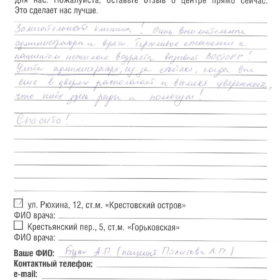 для нас. Пожалуйста, оставьте отзыв о центре прямо сейчас.
Это сделает нас лучше.
Замечательная клиника! Очень внимательные
администраторы и врачи. Бережное отношение к
пациентам пожилого возраста вызывает ВОСТОРГ!
администратору, из-за стойки, когда вы
еще в дверях располагает и вселяет уверенность,
что тебе здесь рады и помогут!
Спасибо!
ул. Рюхина, 12, ст.м. «Крестовский остров»
ФИО врача:
Крестьянский пер., 5, ст.м. «Горьковская»
ФИО врача:
Ваше ФИО: А.П. (пациент
Контактный телефон:
e-mail: